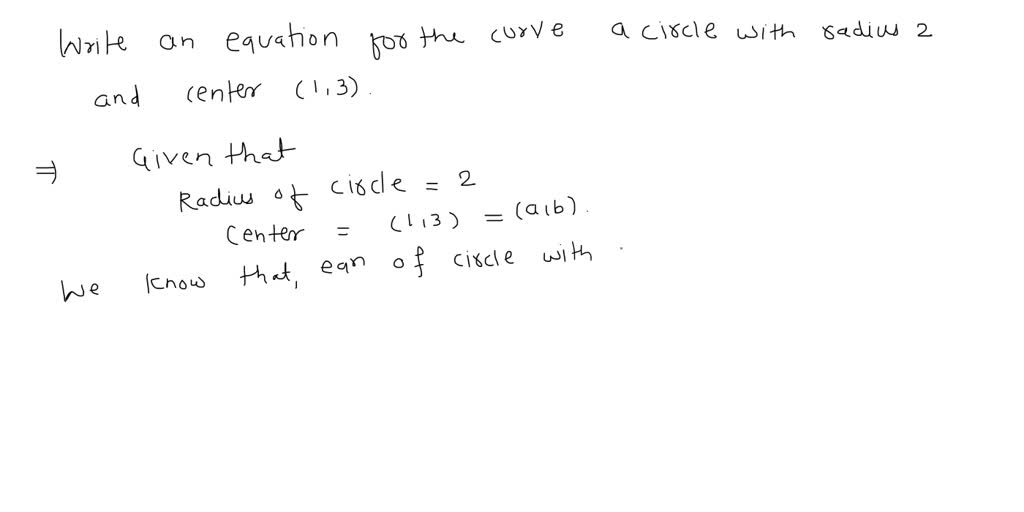 Write an equation for the curve a circle with radius 2
and center (1,3).
⇒ Given that
Radius of circle = 2
Center = (1,3) = (a,b).
We know that, eqn of circle with